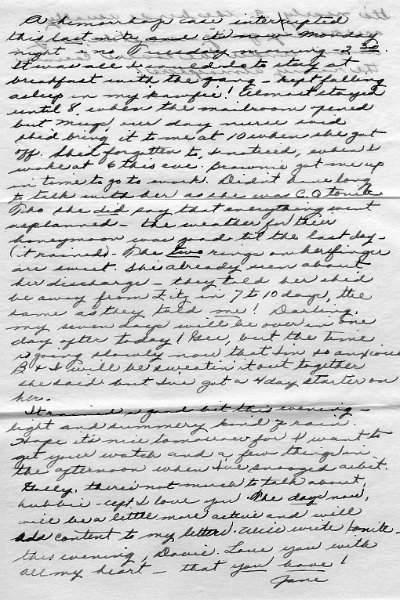 A hemorrhage case interrupted
this last nite and it's now Monday
night - no Tuesday morning - 2 30.
It was all I could do to stay at
breakfast with the - kept falling
asleep on my knife! Almost stayed
until 8 when the mailroom opened
but Mugs, our day nurse said
she'd bring it to me at 10 when she got
off. She'd forgotten to, I noticed, when I
woke at 6 this eve. Brownie got me up
in time to go to work. Didn't have long
to talk with her as she was C.Q. tonite
Tho she did say that everything went
as planned - the weather for their
honeymoon was good til the last day -
(it rained). The two rings on her finger
are sweet. She already seen about
her discharge - they told her she'd
be away from it in 7 to 10 days, the
same as they told me! Darling,
my seven days will be over in one
day after today! Gee, but the time
is going slowly now that I'm so anxious
B & I will be sweatin' it out together
she said but I've got a 4 day starter on
her.
It rained a good bit this evening -
light and summery kind of rain.
Hope it's nice tomorrow for I want to
get your watch and a few things in
the afternoon when I've snoozed a bit.
Golly, there's not much to talk about,
hubbie - cept I love you. The days now,
will be a little more active and will
add content to my letters. Alice write tonite -
this evening, Davie. Love you with
all my heart - that you have!
Jane